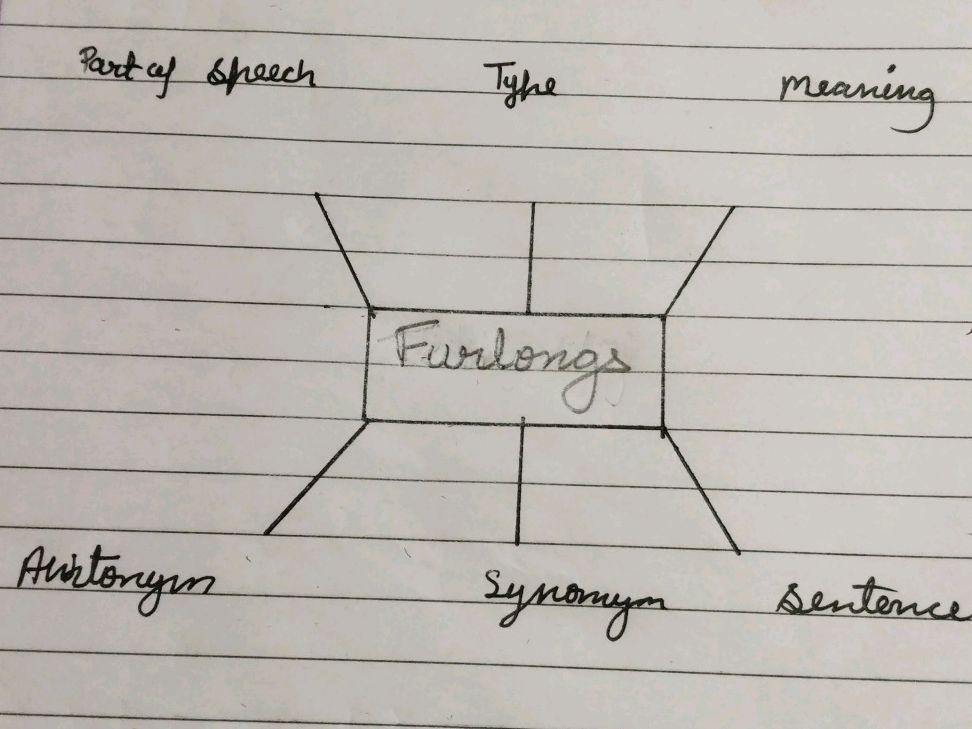 Part of Speech Type Meaning
Furlongs
Antonym Synonym Sentence